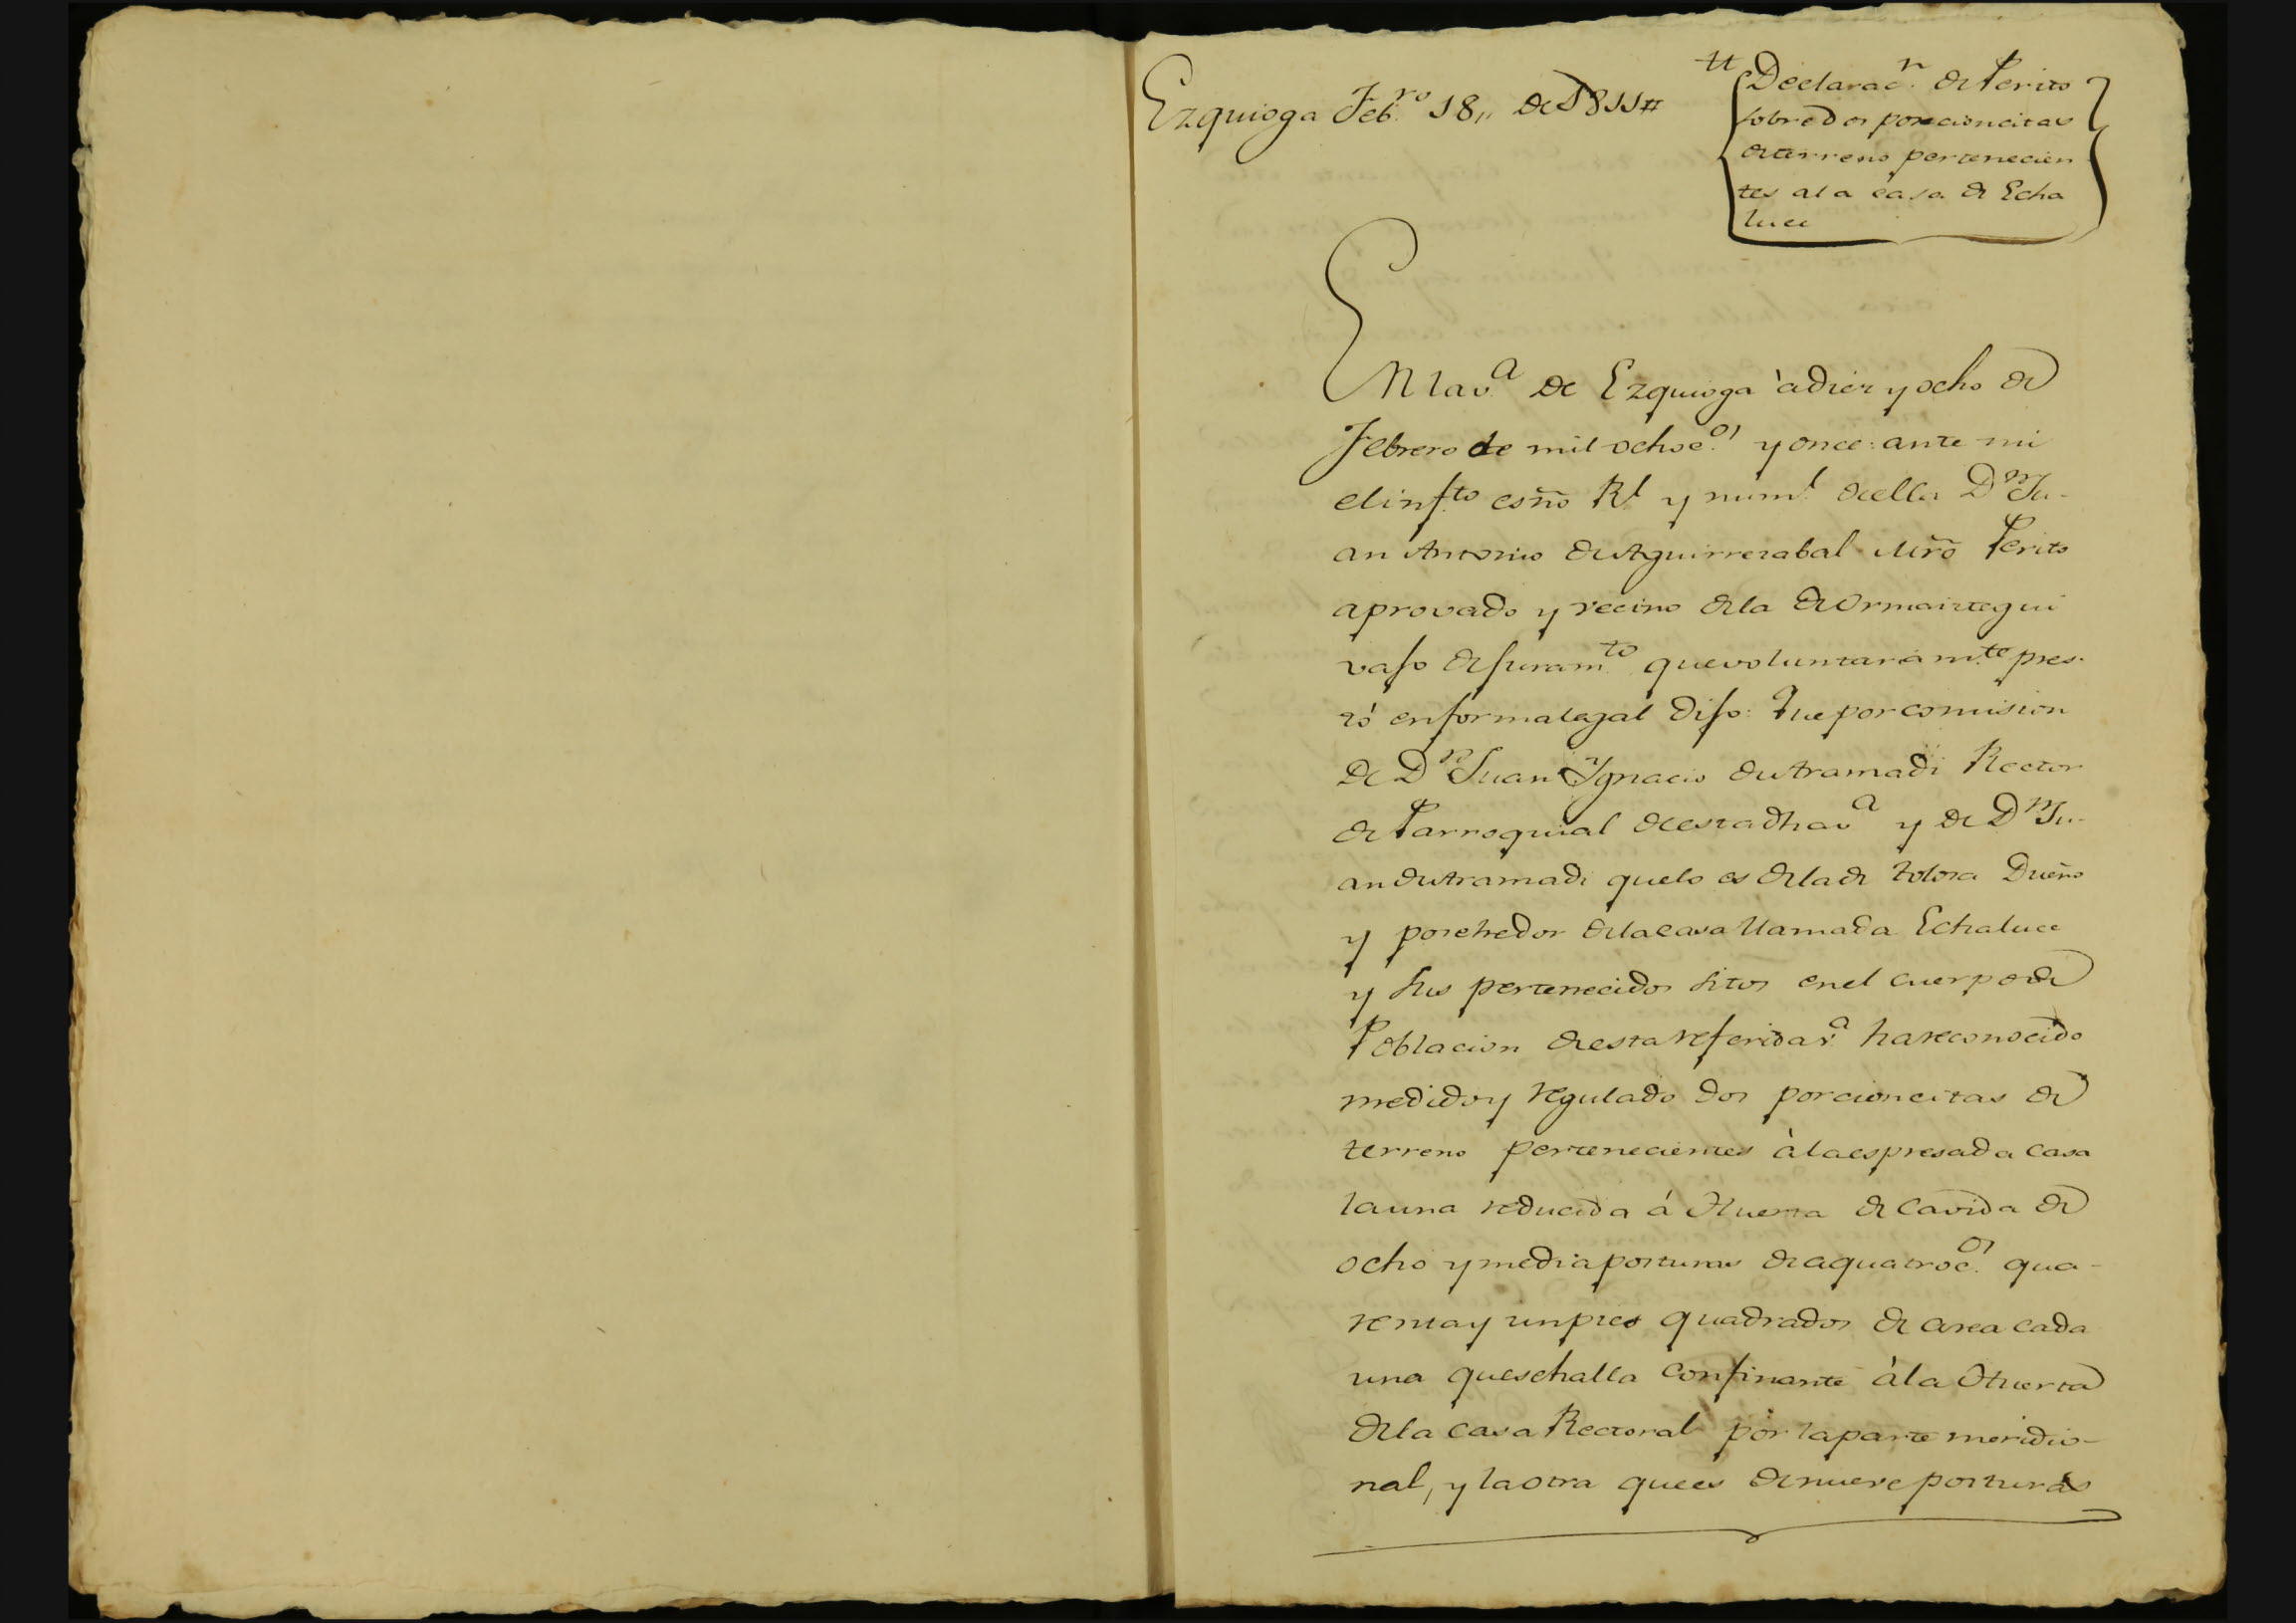 Ezquioga Feb.ro 18,, de 1811#
# Declarac.n de Perito
sobre dos porcioncitas
de terreno pertenecien
tes a la casa de Echa
luce
En la v.a de Ezquioga à diez y ocho de
Febrero de mil ochoc.os y once: ante mi
el inf.to esño Rl y num.l de ella D.n Ju-
an Antonio de Aguirrezabal Mrõ Perito
aprovado y vecino de la de Ormaiztegui
vajo de juram.to que voluntariam.te pres-
tó en forma legal dijo: Que por comision
de D.n Juan Ygnacio de Aramadi Rector
de Parroquial de esta dha v.a y de D.n Ju-
an de Aramadi que lo es de la de Tolosa Dueño
y posehedor de la casa llamada Echaluce
y sus pertenecidos sitos en el cuerpo de
Poblacion de esta referida v.a ha reconocido
medido y regulado dos porcioncitas de
terreno pertenecientes à la espresada casa
la una reducida á Huerta de cavida de
ocho y media posturas de a quatroc.os qua-
renta y un pies quadrados de area cada
una que se halla confinante à la Huerta
de la casa Rectoral por la parte meridio-
nal, y la otra que es de nueve posturas